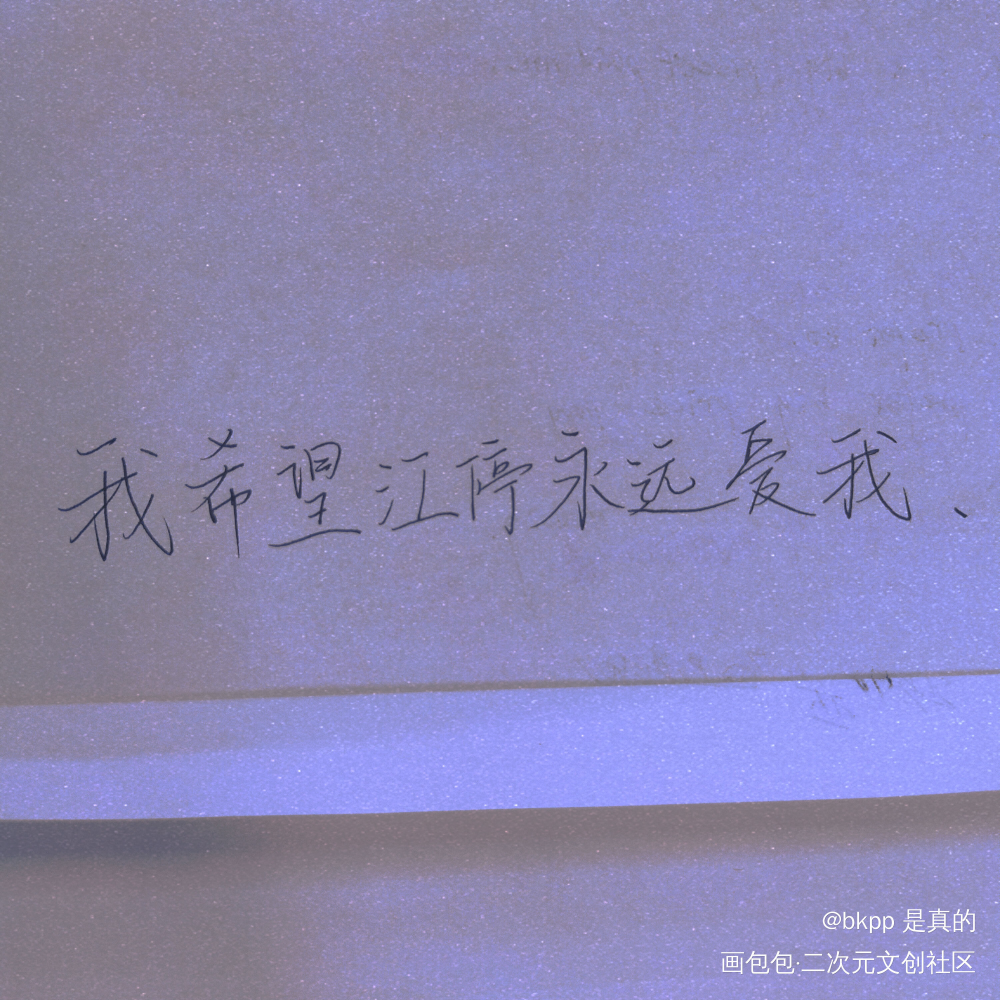 我希望江停永远爱我、
@bkpp 是真的
画包包·二次元文创社区